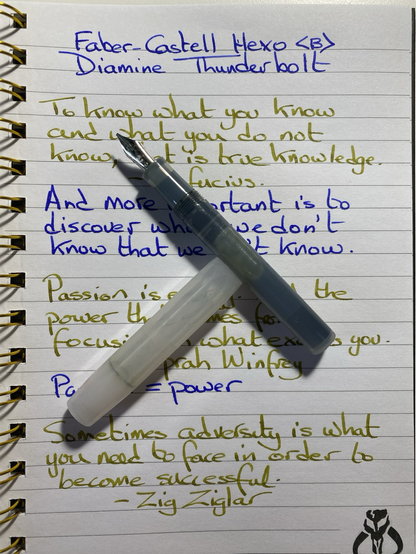 Faber-Castell Hexo <B>
Diamine Thunderbolt
To know what you know
and what you do not
know, t is true knowledge.
fucius.
And more rtant is to
discover wh we don't
know that we 't know.
Passion is the
power th
focus what you.
prah Winfrey
Pa = power
Sometimes adversity is what
you need to face in order to
become successful.
- Zig Ziglar